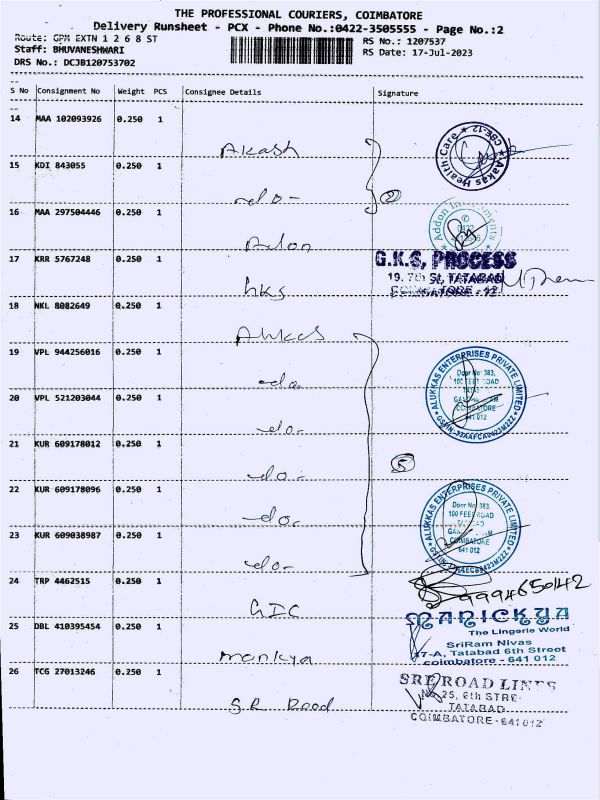 THE PROFESSIONAL COURIERS, COIMBATORE
Delivery Runsheet - PCX - Phone No.:0422-3505555 - Page No.:2
Route: GPM EXTN 1 2 6 8 ST
RS No.: 1207537
Staff: BHUVANESHWARI
RS Date: 17-Jul-2023
DRS No.: DCJB120753702
S No Consignment No Weight PCS Consignee Details Signature
14 MAA 102093926 0.250 1
Akash
Aakas Health Care ★ CBE-12 ★
15 KDI 843055 0.250 1
-do-
2
16 MAA 297504446 0.250 1
Adon
Addon
0422
17 KRR 5767248 0.250 1
G.K.S, PROCESS
19, 7th St, TATABAD
COIMBATORE - 12
hks
18 NKL 8082649 0.250 1
19 VPL 944256016 0.250 1
-do-
ALUKKAS ENTERPRISES PRIVATE LIMITED
Door No: 383,
100 FEET ROAD
COIMBATORE
641 012
20 VPL 521203044 0.250 1
-do-
21 KUR 609178012 0.250 1
-do-
5
22 KUR 609178096 0.250 1
-do-
ALUKKAS ENTERPRISES PRIVATE LIMITED
Door No: 383,
100 FEET ROAD
COIMBATORE
641 012
23 KUR 609038987 0.250 1
-do-
24 TRP 4462515 0.250 1
9994650142
GIC
MANICKYA
The Lingerie World
25 DBL 410395454 0.250 1
SriRam Nivas
17-A, Tatabad 6th Street
coimbatore - 641 012
mankya
26 TCG 27013246 0.250 1
SRE ROAD LINES
25, 6th STREE
TATABAD
COIMBATORE - 641012
S.R Road